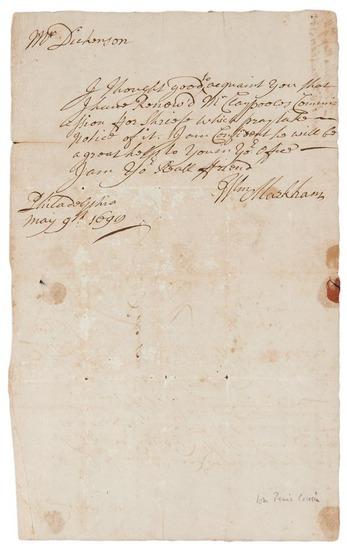 Mr Dickenson
I Thought good to acquaint You that
I have Renew'd Mr Claypooles Commis
sion ffor Shreef which pray take
Notice of it. I am Confident he will be
a great help to You in Yor Office
I am Yor Reall ffriend
Wm Markham
Philadelphia
May 9th 1699
Wm Penn's Cousin